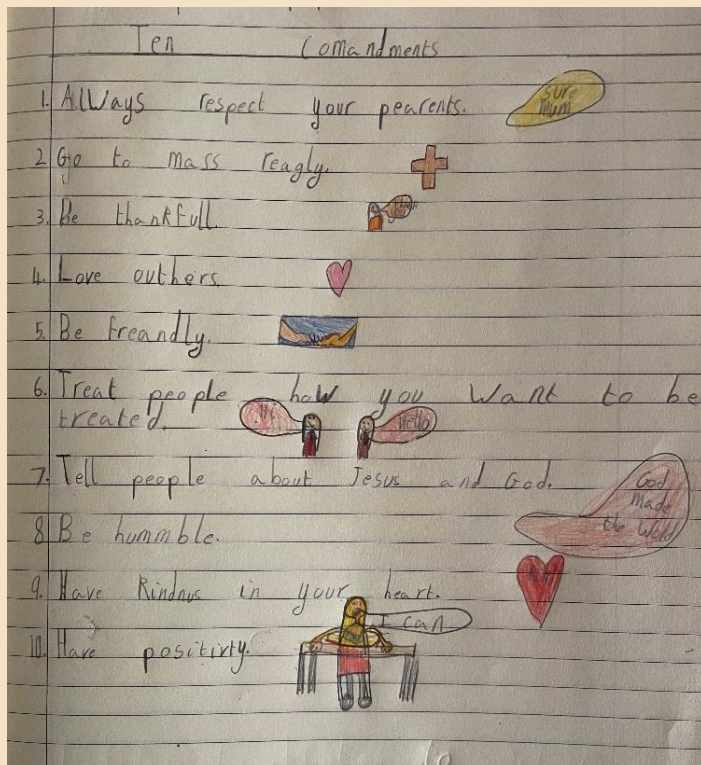 Ten Comandments
1. Always respect your pearents.
sure Mum
2 Go to mass reagly.
3. Be thankfull.
thank you
4. Love outhers.
5. Be freandly.
6. Treat people how you want to be
treated.
Hi
Hello
7. Tell people about Jesus and God.
God
Made
the Wold
8 Be hummble.
9. Have kindnus in your heart.
I can
10. Have positivty.